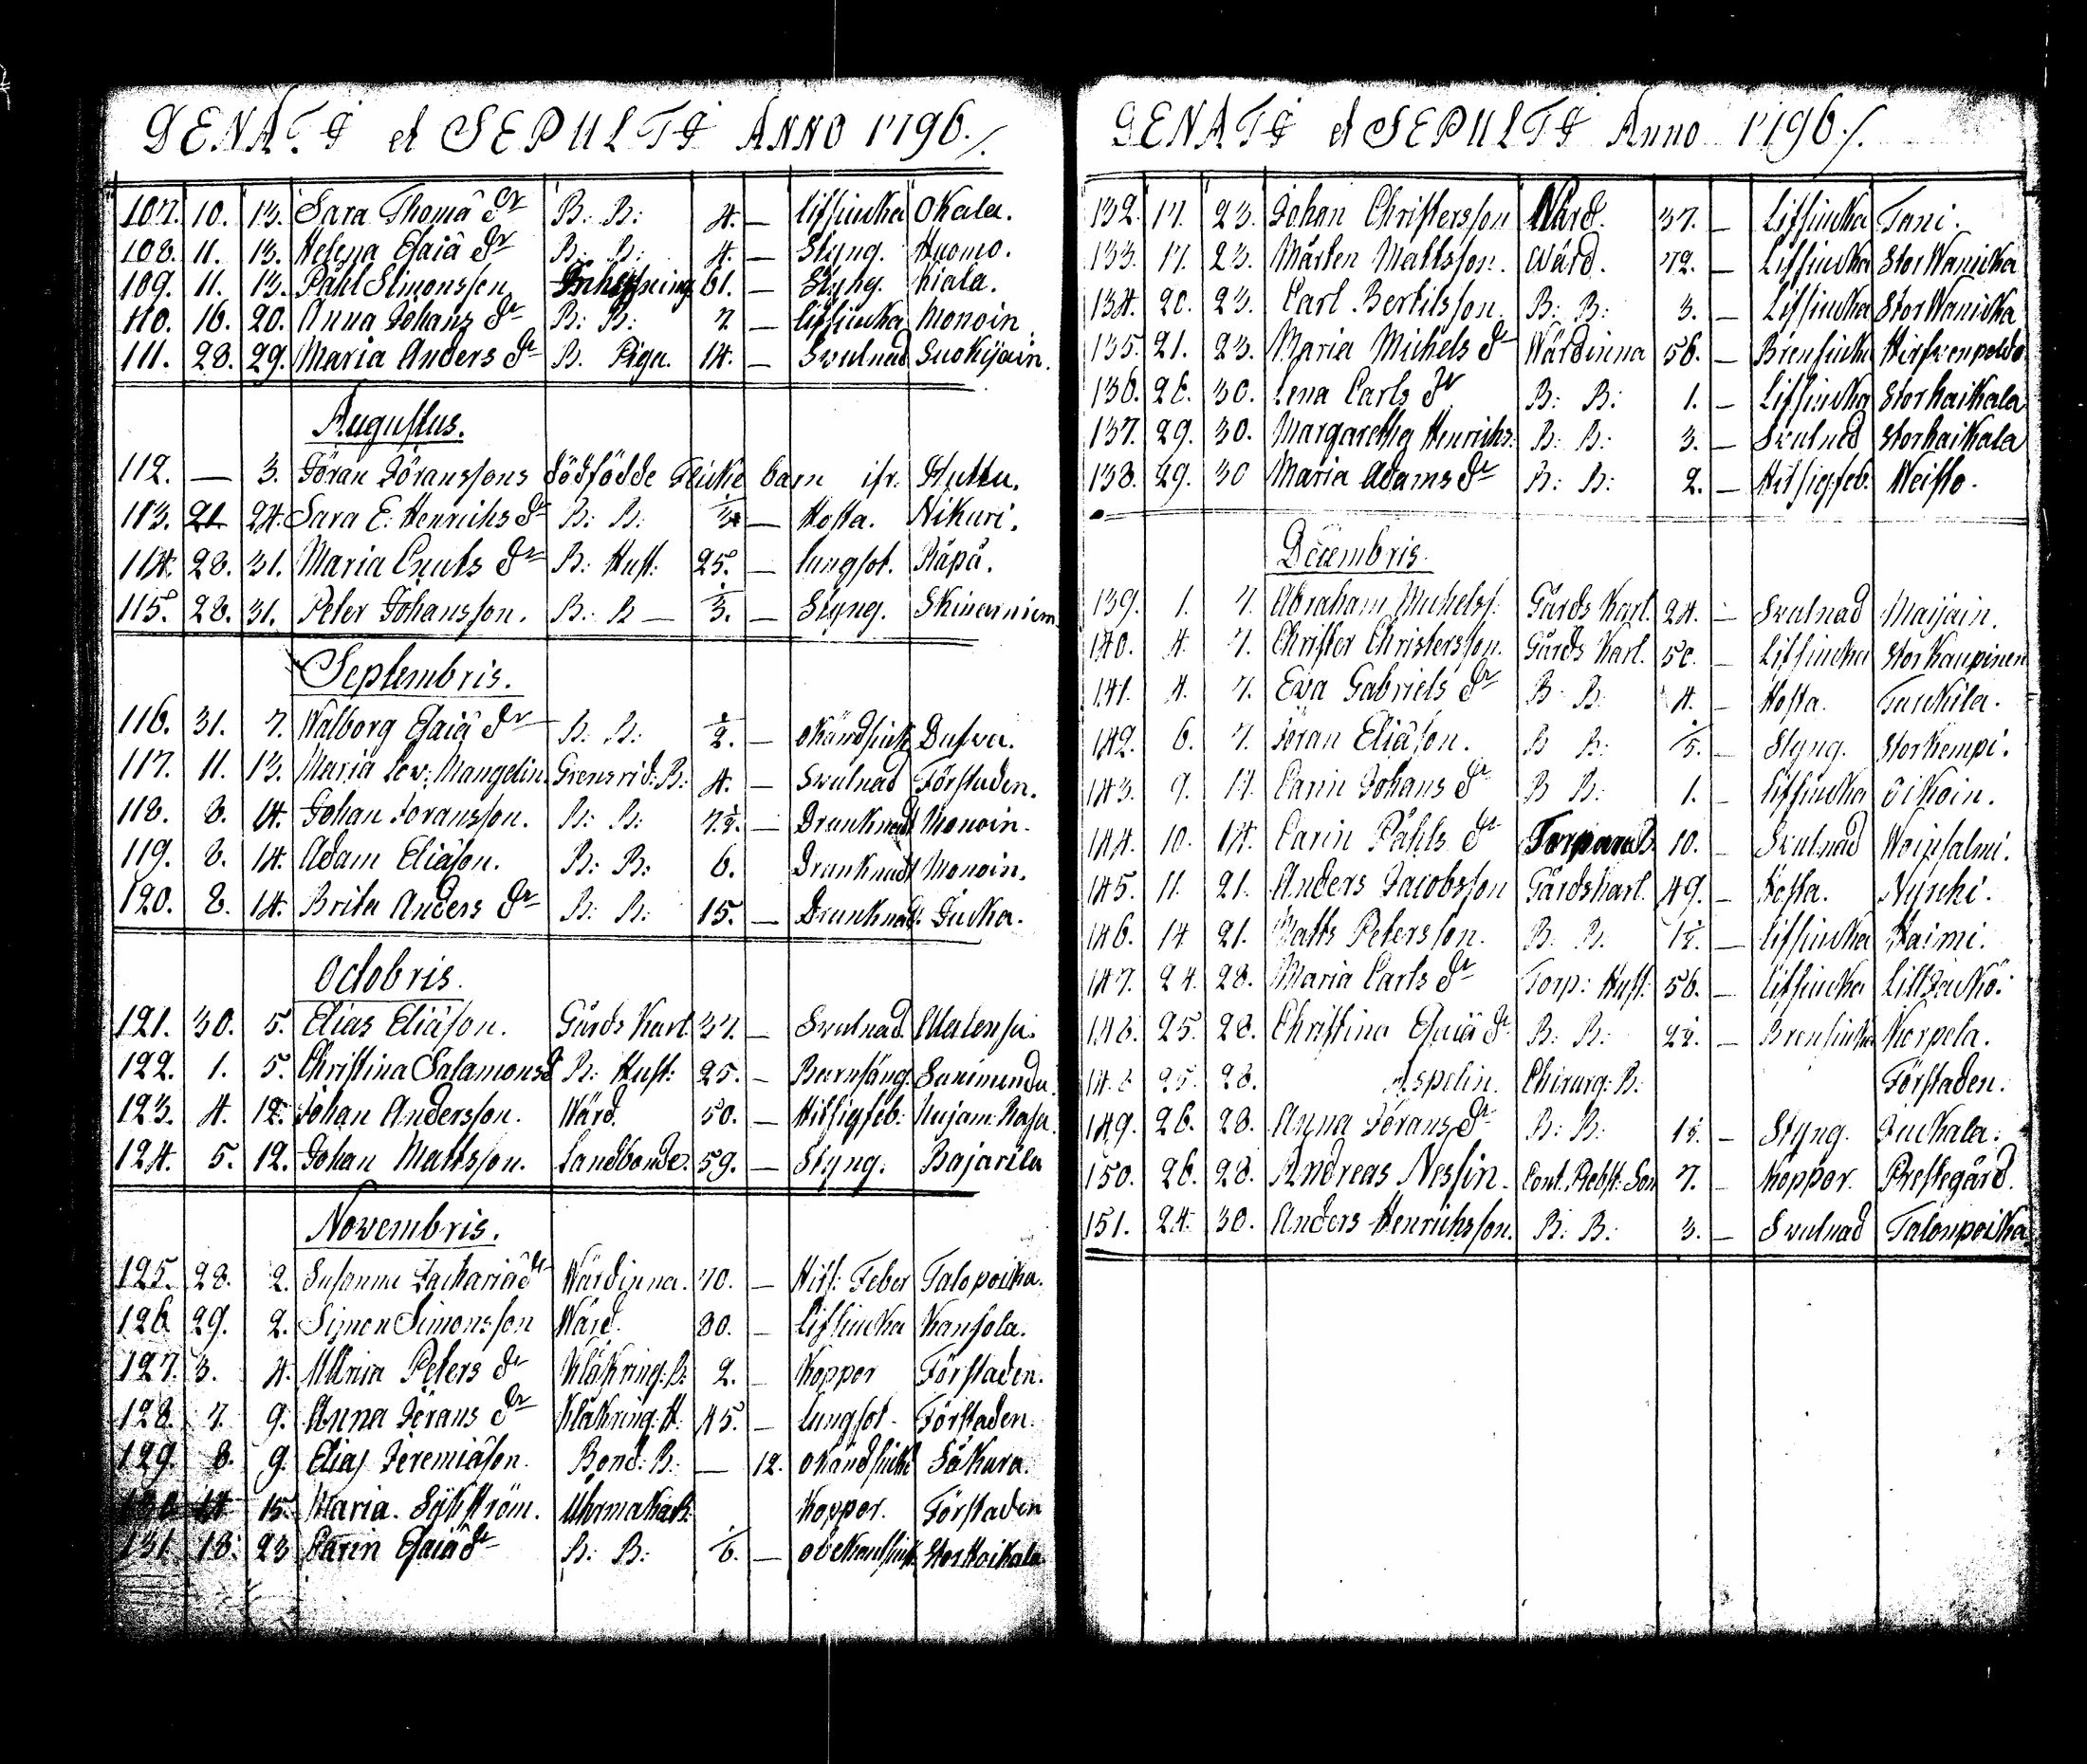 DENATI et SEPULTI ANNO 1796.
107. 10. 13. Sara Thomæ dr B: B: 4. — Lifsiucka Okala.
108. 11. 13. Helena Esaiæ dr B: B: 4. — Styng. Huomo.
109. 11. 13. Påhl Simonsson Inhysning 61. — Styng. Kiala.
110. 16. 20. Anna Johans dr B: B: 7. — Lifsiucka Monoin
111. 28. 29. Maria Anders dr B. Piga. 14. — Svulnad Suokijain.
Augustus.
112. — 3. Göran Göranssons dödfödde Flicke barn ifr. Huttu.
113. 21. 24. Sara E. Henrichs dr B: B: — Hosta. Nikuri.
114. 28. 31. Maria Cnuts dr B: Hust: 25. — Lungsot. Räpä.
115. 28. 31. Peter Johansson. B: B — 1/3. — Styng. Skinarniem.
Septembris.
116. 31. 7. Walborg Esaiæ dr B: B: 1/2. — okändsiuk Dufva.
117. 11. 13. Maria Lov: Mangelin Grensrid: B: 4. — Svulnad Förstaden.
118. 8. 14. Johan Joransson. B: B: 7 1/2. — Drunknadt Monoin.
119. 8. 14. Adam Eliæson. B: B: 6. — Drunknadt Monoin.
120. 8. 14. Brita Anders dr B: B: 15. — Drunknadt. Jucka.
Octobris.
121. 30. 5. Elias Eliæson. Gårds Karl. 37. — Svulnad.
122. 1. 5. Christina Salamonsd B: Hust: 25. — Barnsäng.
123. 4. 12. Johan Andersson. Wärd. 50. — Hitsigfeb:
124. 5. 12. Johan Mattsson. Landbonde. 59. — Styng. Bajarila
Novembris.
125. 28. 2. Susanna Zachariæ dr Wärdinna. 70. — Hits: Feber Talopoicka.
126. 29. 2. Simon Simonsson Wärd. 80. — Lifsiucka Kansola.
127. 3. 4. Maria Peters dr Klåkring: B: 2. — Koppor Förstaden.
128. 7. 9. Anna Jörans dr Klåkring: H: 45. — Lungsot. Förstaden.
129. 8. 9. Elias Jeremiæson. Bond: B: — 12. okändsiuk Säkara.
130 14 15. Maria. Sjöström. Uhrmakar B: Koppor. Förstaden
131. 18. 23 Carin Esaiæ dr B: B: 1/6. — Storkaikala
DENATI et SEPULTI Anno 1796.
132. 17. 23. Johan Christersson Wärd. 37. — Lifsiucka Tani.
133. 17. 23. Mårten Mattsson. Wärd. 72. — Lifsiucka Stor Wanicka
134. 20. 23. Carl Bertilsson. B: B: 3. — Lifsiucka Stor Wanicka
135. 21. 23. Maria Michels dr Wärdinna 56. — Brensiucka Hirfvenpoldo
136. 28. 30. Lena Carls dr B: B: 1. — Lifsiucka Storkaikala
137. 29. 30. Margaretha Henrichs: B: B: 3. — Svulnad Storkaikala
138. 29. 30 Maria Adams dr B: B: 2. — Hitsigfeb. Weisto.
Decembris.
139. 1. 7. Abraham Michelss: Gårds Karl. 24. — Svulnad Maijain.
140. 4. 7. Christer Christersson. Gårds Karl. 50. — Lifsiucka Stor Kaupinen
141. 4. 7. Eva Gabriels dr B: B: 4. — Hosta. Turckila.
142. 6. 7. Jöran Eliæson. B B: 1/5. — Styng. Storkempi.
143. 9. 14. Carin Johans dr B B: 1. — Lifsiucka Öikoin.
144. 10. 14. Carin Påhls dr Torpare B. 10. — Svulnad Woipsalmi.
145. 11. 21. Anders Jacobsson Gårdskarl. 49. — Hosta. Nyrcki.
146. 14 21. Matts Petersson. B: B. 1 1/2. — Lifsiucka Kaimi.
147. 24. 28. Maria Carls dr Torp: Hust: 56. — Lifsiucka
148. 25. 28. Christina Esaiæ dr B: B: 2 1/2. — Brensiucka Korpela.
148 25. 28. Aspelin. Chirurg: B: Förstaden.
149. 26. 28. Anna Jörans dr B: B: 1 1/2. — Styng. Juckala.
150. 26. 28. Andreas Nessin. Cont. Rebst: Son 7. — Koppor. Prestegård.
151. 24. 30. Anders Henrichsson. B: B: 3. — Svulnad Talonpoicka